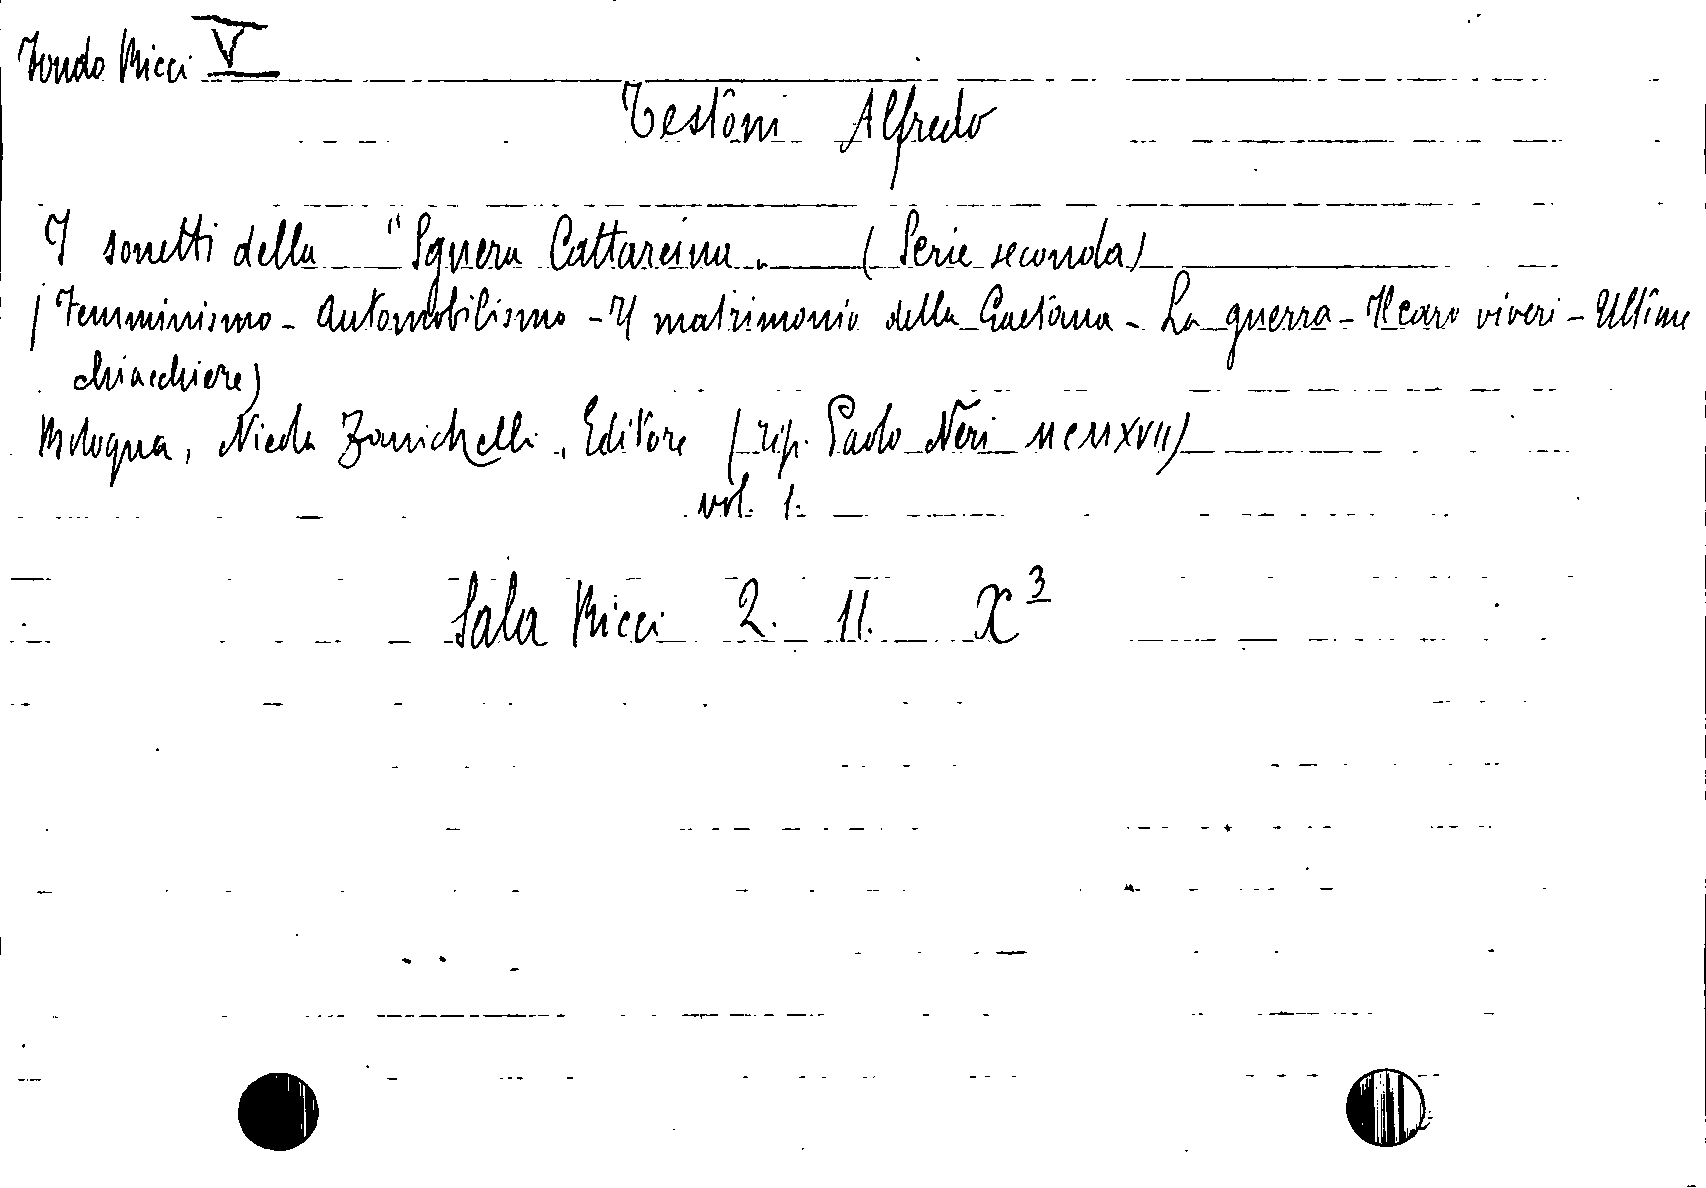 Fondo Ricci V
Testoni Alfredo
I sonetti della "Sgnera Cattareina„ (Serie seconda)
(Femminismo - Automobilismo - Il matrimonio della Gaetana - La guerra - Il caro viveri - Ultime
chiacchiere)
Bologna, Nicola Zanichelli, Editore (tip. Paolo Neri MCMXVII)
vol. 1.
Sala Ricci 2. 11. X 3